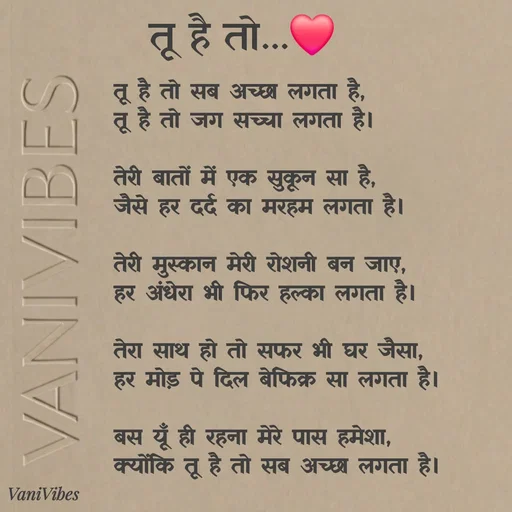 तू है तो...❤️
तू है तो सब अच्छा लगता है,
तू है तो जग सच्चा लगता है।
तेरी बातों में एक सुकून सा है,
जैसे हर दर्द का मरहम लगता है।
तेरी मुस्कान मेरी रोशनी बन जाए,
हर अंधेरा भी फिर हल्का लगता है।
तेरा साथ हो तो सफर भी घर जैसा,
हर मोड़ पे दिल बेफिक्र सा लगता है।
बस यूँ ही रहना मेरे पास हमेशा,
क्योंकि तू है तो सब अच्छा लगता है।
VANIVIBES
VaniVibes